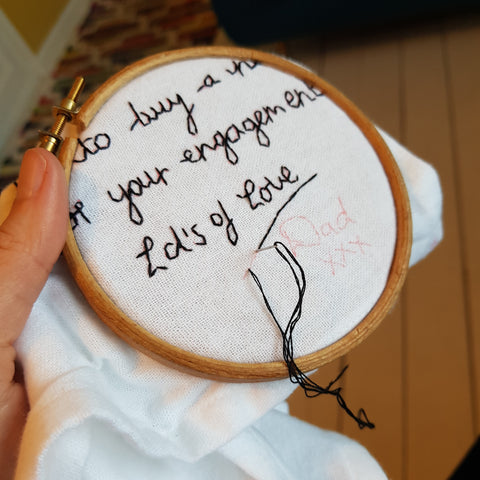 to buy a
your engagement
Ld's of Love
Dad
xxx